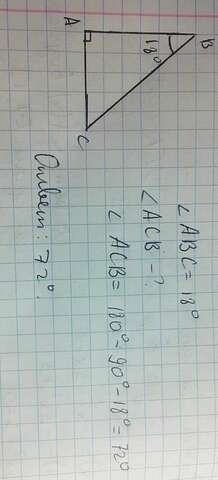 A
B
18°
C
∠ABC = 18°
∠ACB - ?
∠ACB = 180° - 90° - 18° = 72°
Ответ: 72°.